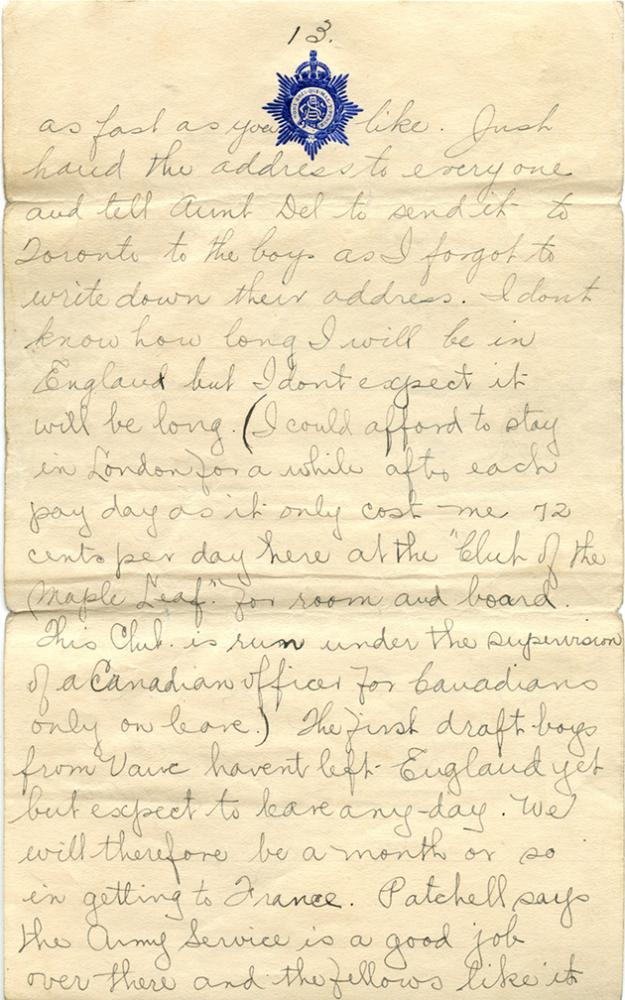 13.
as fast as you like. Just
hand the address to everyone
and tell Aunt Del to send it to
Toronto to the boys as I forgot to
write down their address. I dont
know how long I will be in
England but I dont expect it
will be long. (I could afford to stay
in London for a while after each
pay day as it only cost me 72
cents per day here at the "Club of the
Maple Leaf." for room and board.
This Club. is run under the supervision
of a Canadian officer for Canadians
only on leave.) The first draft boys
from Vanc havent left England yet
but expect to leave any-day. We
will therefore be a month or so
in getting to France. Patchell says
the Army Service is a good job
over there and the fellows like it